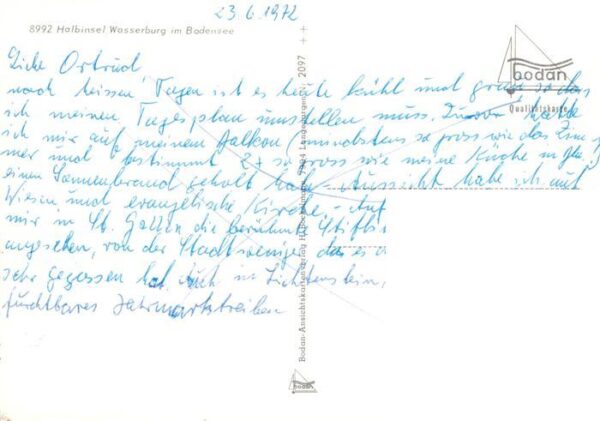 23.6.1972
8992 Halbinsel Wasserburg im Bodensee
Liebe Ortrud
nach heissen Tagen ist es heute kühl und grau so das
ich meinen Tagesplan umstellen muss. Zuvor hatte
ich mir auf meinem Balkon (mindestens so gross wie das Zim
mer und bestimmt 2x so gross wie meine Küche in
einen Sonnenbrand geholt habe - Aussicht habe ich auf
Wiesen und evangelische Kirche,
mir in St. Gallen die berühmte Stifts
angesehen, von der Stadt weniger, das es
sehr gegossen hat. Auch in Lichtenstein,
furchtbares Jahrmarktstreiben
bodan
Qualitätskarte
2097
Bodan-Ansichtskartenverlag
bodan